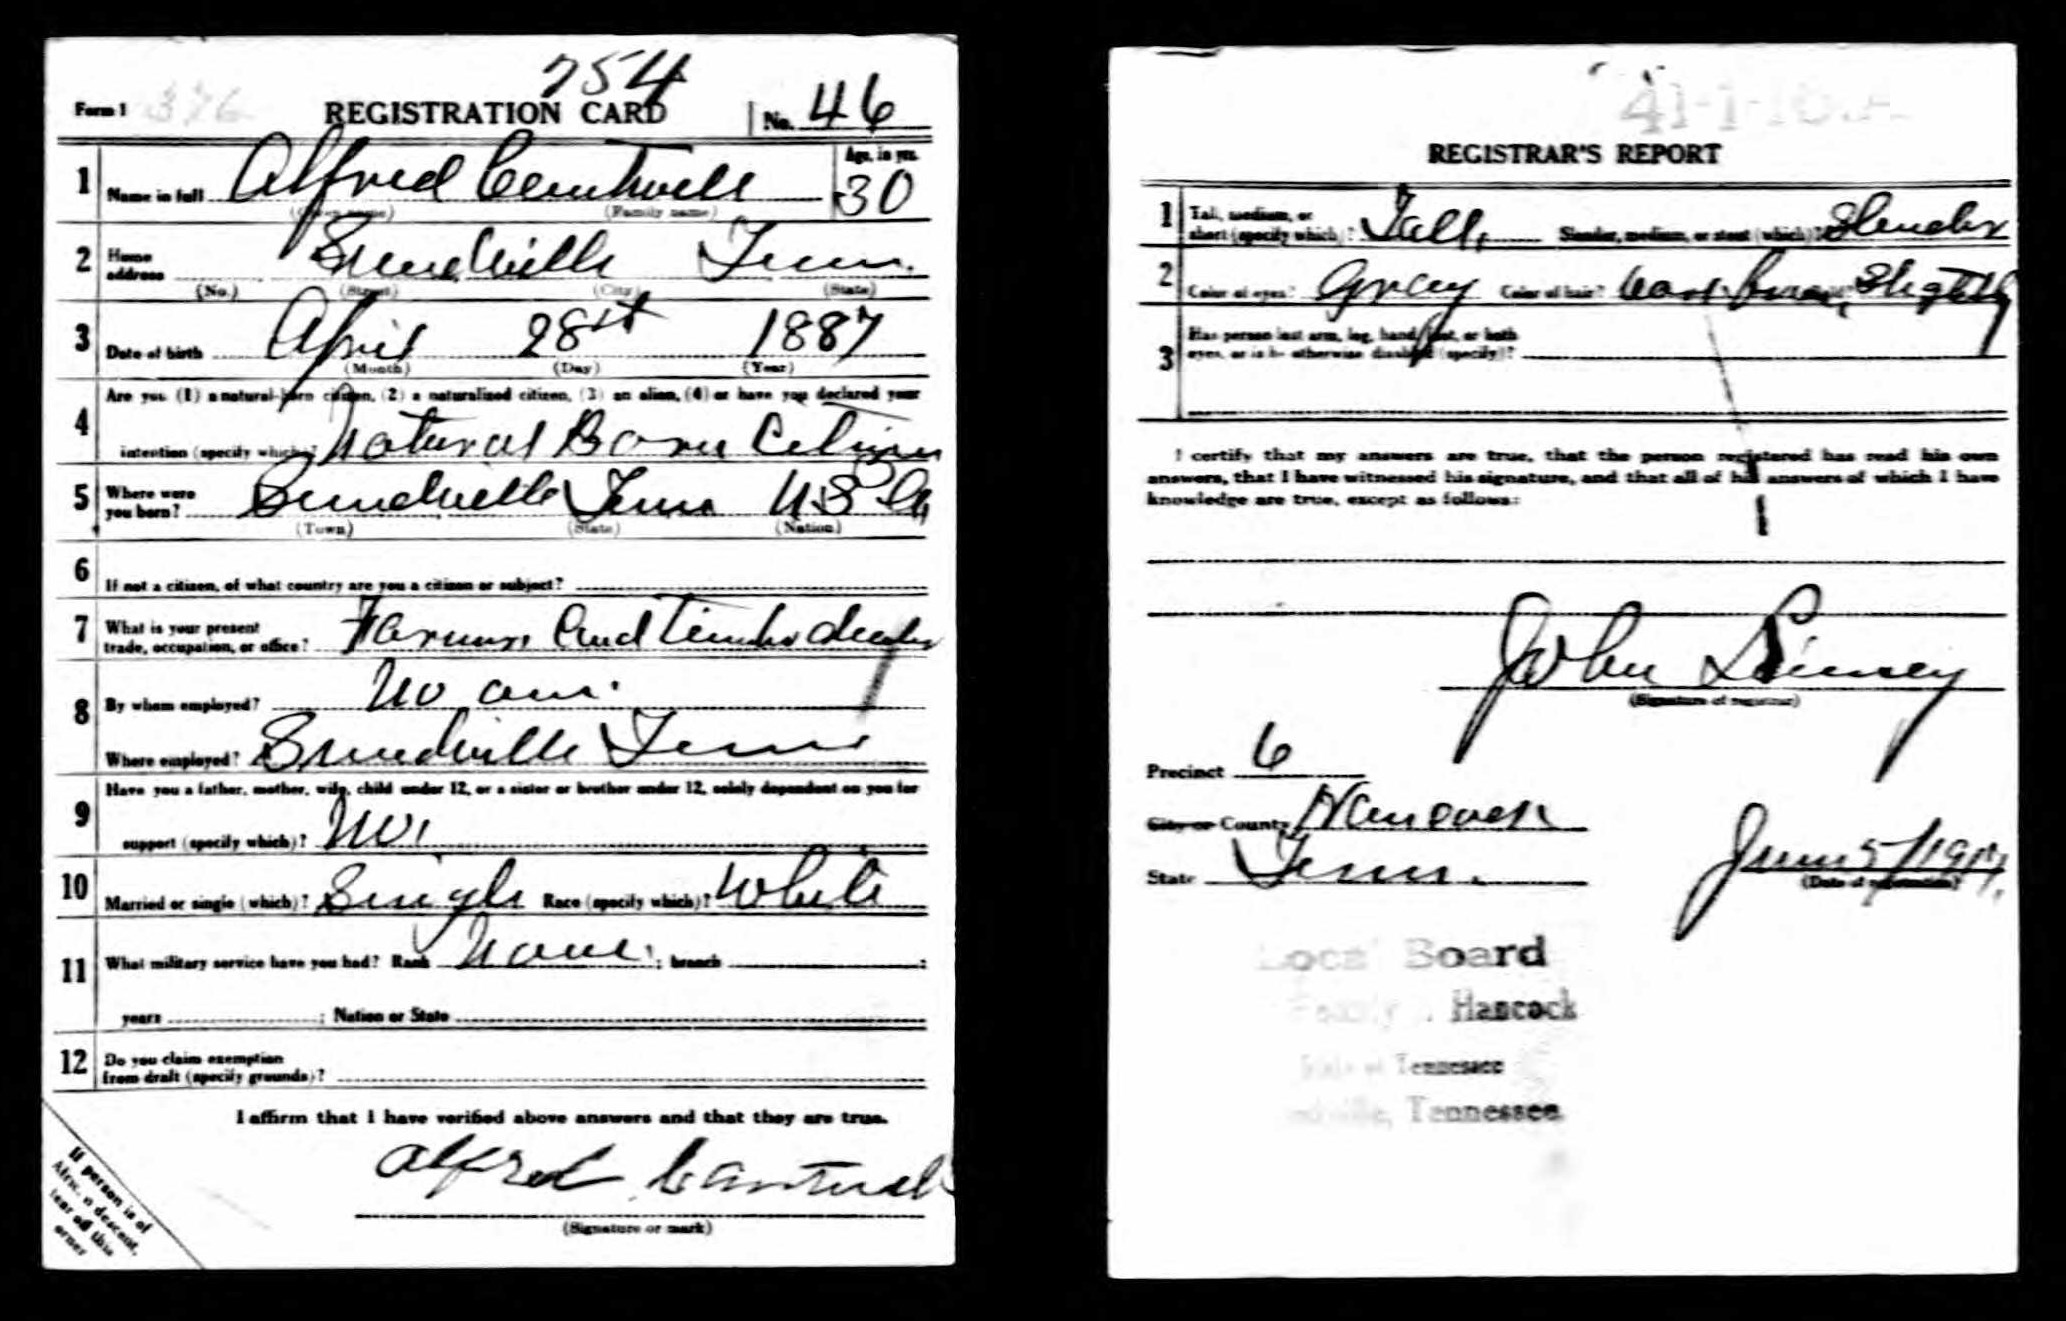 754
Form 1 376 REGISTRATION CARD No. 46
1 Name in full Alfred Cantwell Age, in yrs. 30
(Given name) (Family name)
2 Home address Sneedville Tenn.
(No.) (Street) (City) (State)
3 Date of birth April 28st 1887
(Month) (Day) (Year)
4 Are you (1) a natural-born citizen, (2) a naturalized citizen, (3) an alien, (4) or have you declared your
intention (specify which)? Natural Born Citizen
5 Where were you born? Sneedville Tenn U.S.A.
(Town) (State) (Nation)
6 If not a citizen, of what country are you a citizen or subject?
7 What is your present trade, occupation, or office? Farmer and timber dealer
8 By whom employed? No one.
Where employed? Sneedville Tenn
9 Have you a father, mother, wife, child under 12, or a sister or brother under 12, solely dependent on you for
support (specify which)? No.
10 Married or single (which)? Single Race (specify which)? White
11 What military service have you had? Rank None; branch ;
years ; Nation or State
12 Do you claim exemption from draft (specify grounds)?
I affirm that I have verified above answers and that they are true.
Alfred Cantwell
(Signature or mark)
If person is of
African descent,
tear off this
corner
REGISTRAR'S REPORT
1 Tall, medium, or short (specify which)? Tall, Slender, medium, or stout (which)? Slender
2 Color of eyes? Gray Color of hair? Slightly
3 Has person lost arm, leg, hand, foot, or both
eyes, or is he otherwise disabled (specify)?
I certify that my answers are true, that the person registered has read his own
answers, that I have witnessed his signature, and that all of his answers of which I have
knowledge are true, except as follows:
John
(Signature of registrar)
Precinct 6
City or County Hancock
State Tenn.
June 5/1917.
(Date of registration)
Local Board
Hancock
State of Tennessee
Tennessee